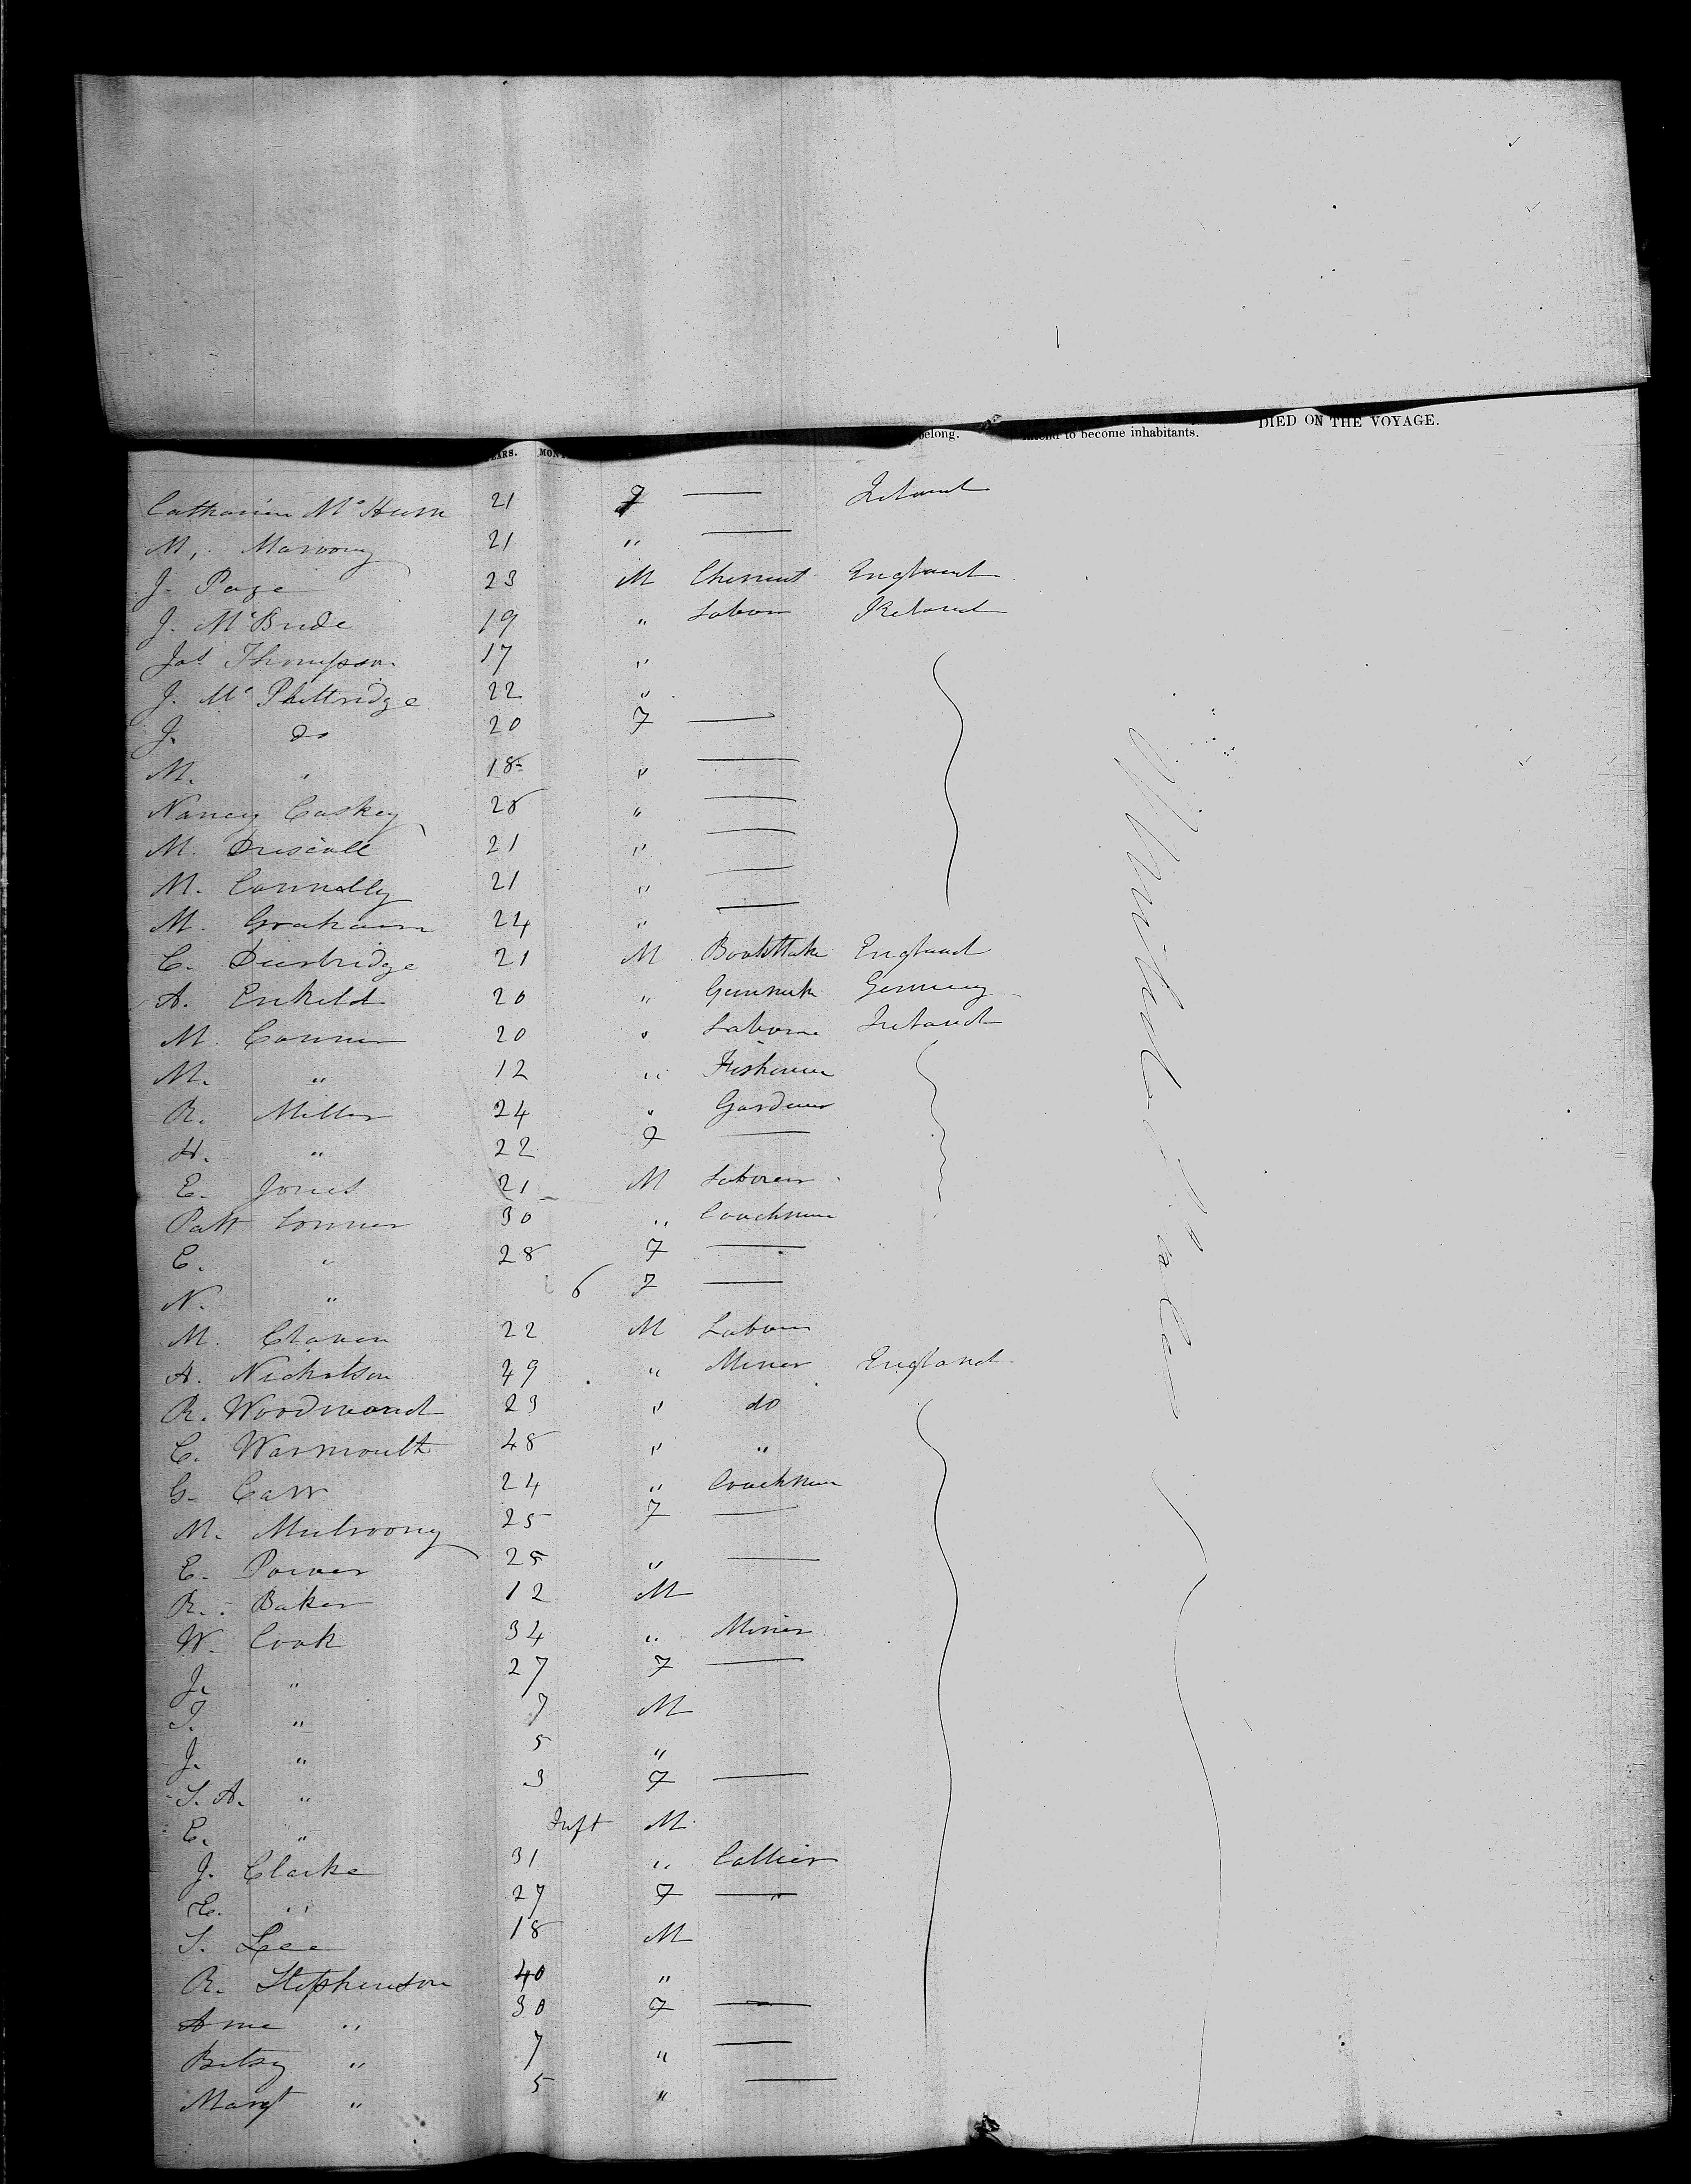 belong. intend to become inhabitants. DIED ON THE VOYAGE.
EARS. MON
Catharine McHum 21 F — Ireland
M. Maroony 21 " —
J. Page 23 M Chemist England
J. McBride 19 " Labour Ireland
Jas Thompson 17 "
J. McPhettridge 22 "
J. do 20 F —
M. " 18 " —
Nancy Caskey 28 " —
M. Driscoll 21 " —
M. Connolly 21 " —
M. Graham 24 " —
C. Deerbridge 21 M England
A. Enkeld 20 " Gunmak Germany
M. Conner 20 " Laborer Ireland
M. " 12 " Fisherman
R. Miller 24 " Gardener
H. " 22 F —
E. Jones 21 M Laborer
Patt Conner 30 " Coachman
C. " 28 F —
N. " 6 F —
M. Claven 22 M Labour
A. Nicholson 49 " Miner England
R. Woodward 23 " do
C. Warmoulth 48 " "
G. Carr 24 " Coachman
M. Mulroony 25 F —
E. Power 25 " —
R. Baker 12 M
W. Cook 34 " Miner
J. " 27 F —
T. " 7 M
J. " 5 "
S. A. " 3 F —
E. " Inft M
J. Clarke 31 " Collier
E. " 27 F —
S. Lee 18 M
R. Stephenson 40 "
Ame " 30 F —
Betsy " 7 " —
Margt " 5 " —
United States